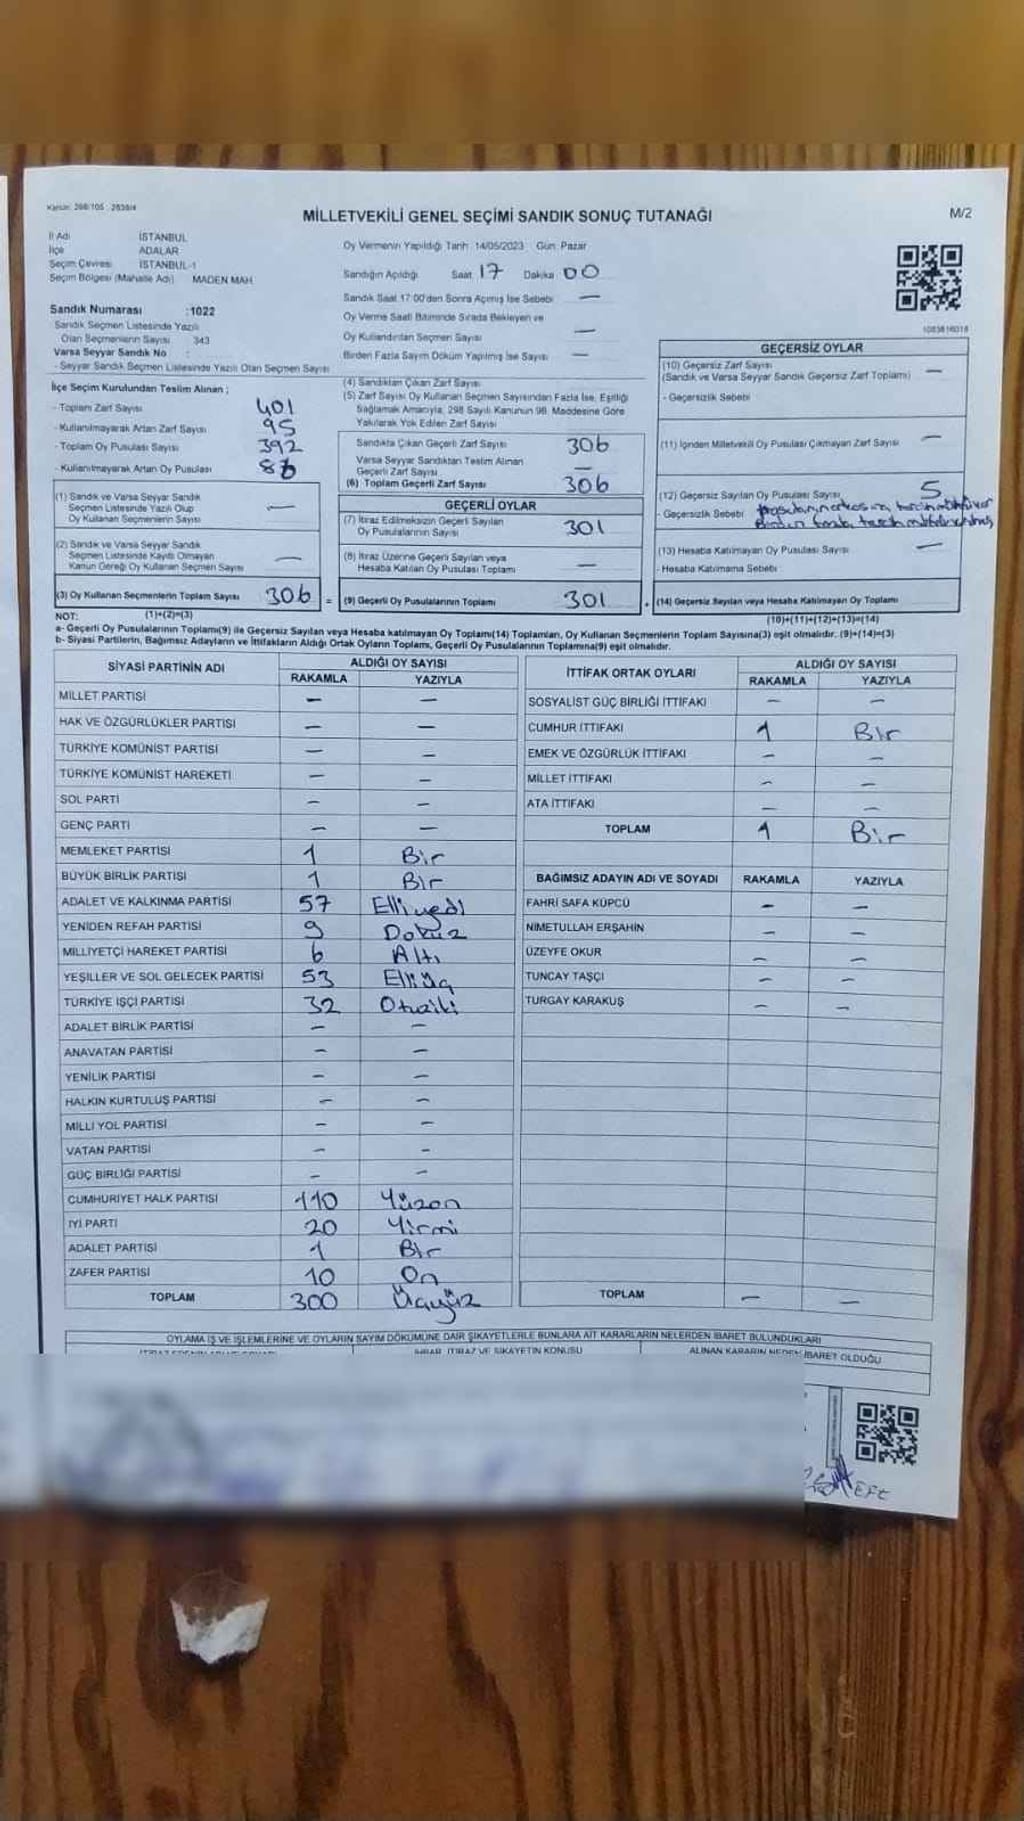 Kanun: 298/105 : 2839/4
MİLLETVEKİLİ GENEL SEÇİMİ SANDIK SONUÇ TUTANAĞI
M/2
İl Adı İSTANBUL
İlçe ADALAR
Seçim Çevresi İSTANBUL-1
Seçim Bölgesi (Mahalle Adı) MADEN MAH.
Sandık Numarası :1022
Sandık Seçmen Listesinde Yazılı
Olan Seçmenlerin Sayısı 343
Varsa Seyyar Sandık No :
- Seyyar Sandık Seçmen Listesinde Yazılı Olan Seçmen Sayısı
İlçe Seçim Kurulundan Teslim Alınan ;
- Toplam Zarf Sayısı 401
- Kullanılmayarak Artan Zarf Sayısı 95
- Toplam Oy Pusulası Sayısı 392
- Kullanılmayarak Artan Oy Pusulası 86
(1) Sandık ve Varsa Seyyar Sandık
Seçmen Listesinde Yazılı Olup
Oy Kullanan Seçmenlerin Sayısı —
(2) Sandık ve Varsa Seyyar Sandık
Seçmen Listesinde Kayıtlı Olmayan
Kanun Gereği Oy Kullanan Seçmen Sayısı —
(3) Oy Kullanan Seçmenlerin Toplam Sayısı 306 =
(1)+(2)=(3)
Oy Vermenin Yapıldığı Tarih: 14/05/2023 Gün: Pazar
Sandığın Açıldığı Saat 17 Dakika 00
Sandık Saat 17:00'den Sonra Açılmış İse Sebebi —
Oy Verme Saati Bitiminde Sırada Bekleyen ve
Oy Kullandırılan Seçmen Sayısı —
Birden Fazla Sayım Döküm Yapılmış İse Sayısı —
(4) Sandıktan Çıkan Zarf Sayısı
(5) Zarf Sayısı Oy Kullanan Seçmen Sayısından Fazla İse, Eşitliği
Sağlamak Amacıyla, 298 Sayılı Kanunun 98. Maddesine Göre
Yakılarak Yok Edilen Zarf Sayısı
Sandıkta Çıkan Geçerli Zarf Sayısı 306
Varsa Seyyar Sandıktan Teslim Alınan
Geçerli Zarf Sayısı —
(6) Toplam Geçerli Zarf Sayısı 306
GEÇERLİ OYLAR
(7) İtiraz Edilmeksizin Geçerli Sayılan
Oy Pusulalarının Sayısı 301
(8) İtiraz Üzerine Geçerli Sayılan veya
Hesaba Katılan Oy Pusulası Toplamı —
(9) Geçerli Oy Pusulalarının Toplamı 301 +
1083616018
GEÇERSİZ OYLAR
(10) Geçersiz Zarf Sayısı
(Sandık ve Varsa Seyyar Sandık Geçersiz Zarf Toplamı) —
- Geçersizlik Sebebi
(11) İçinden Milletvekili Oy Pusulası Çıkmayan Zarf Sayısı —
(12) Geçersiz Sayılan Oy Pusulası Sayısı 5
- Geçersizlik Sebebi
(13) Hesaba Katılmayan Oy Pusulası Sayısı —
- Hesaba Katılmama Sebebi
(14) Geçersiz Sayılan veya Hesaba Katılmayan Oy Toplamı
(10)+(11)+(12)+(13)=(14)
NOT:
a- Geçerli Oy Pusulalarının Toplamı(9) ile Geçersiz Sayılan veya Hesaba katılmayan Oy Toplamı(14) Toplamları, Oy Kullanan Seçmenlerin Toplam Sayısına(3) eşit olmalıdır. (9)+(14)=(3)
b- Siyasi Partilerin, Bağımsız Adayların ve İttifakların Aldığı Ortak Oyların Toplamı, Geçerli Oy Pusulalarının Toplamına(9) eşit olmalıdır.
SİYASİ PARTİNİN ADI ALDIĞI OY SAYISI
RAKAMLA YAZIYLA
MİLLET PARTİSİ — —
HAK VE ÖZGÜRLÜKLER PARTİSİ — —
TÜRKİYE KOMÜNİST PARTİSİ — —
TÜRKİYE KOMÜNİST HAREKETİ — —
SOL PARTİ — —
GENÇ PARTİ — —
MEMLEKET PARTİSİ 1 Bir
BÜYÜK BİRLİK PARTİSİ 1 Bir
ADALET VE KALKINMA PARTİSİ 57 Elliyedi
YENİDEN REFAH PARTİSİ 9 Dokuz
MİLLİYETÇİ HAREKET PARTİSİ 6 Altı
YEŞİLLER VE SOL GELECEK PARTİSİ 53 Elliüç
TÜRKİYE İŞÇİ PARTİSİ 32 Otuziki
ADALET BİRLİK PARTİSİ — —
ANAVATAN PARTİSİ — —
YENİLİK PARTİSİ — —
HALKIN KURTULUŞ PARTİSİ — —
MİLLİ YOL PARTİSİ — —
VATAN PARTİSİ — —
GÜÇ BİRLİĞİ PARTİSİ — —
CUMHURİYET HALK PARTİSİ 110 Yüzon
İYİ PARTİ 20 Yirmi
ADALET PARTİSİ 1 Bir
ZAFER PARTİSİ 10 On
TOPLAM 300 Üçyüz
İTTİFAK ORTAK OYLARI ALDIĞI OY SAYISI
RAKAMLA YAZIYLA
SOSYALİST GÜÇ BİRLİĞİ İTTİFAKI — —
CUMHUR İTTİFAKI 1 Bir
EMEK VE ÖZGÜRLÜK İTTİFAKI — —
MİLLET İTTİFAKI — —
ATA İTTİFAKI — —
TOPLAM 1 Bir
BAĞIMSIZ ADAYIN ADI VE SOYADI RAKAMLA YAZIYLA
FAHRİ SAFA KÜPCÜ — —
NİMETULLAH ERŞAHİN — —
ÜZEYFE OKUR — —
TUNCAY TAŞÇI — —
TURGAY KARAKUŞ — —
TOPLAM — —
OYLAMA İŞ VE İŞLEMLERİNE VE OYLARIN SAYIM DÖKÜMÜNE DAİR ŞİKAYETLERLE BUNLARA AİT KARARLARIN NELERDEN İBARET BULUNDUKLARI
İHBAR, İTİRAZ VE ŞİKAYETİN KONUSU
ALINAN KARARIN NEDEN İBARET OLDUĞU